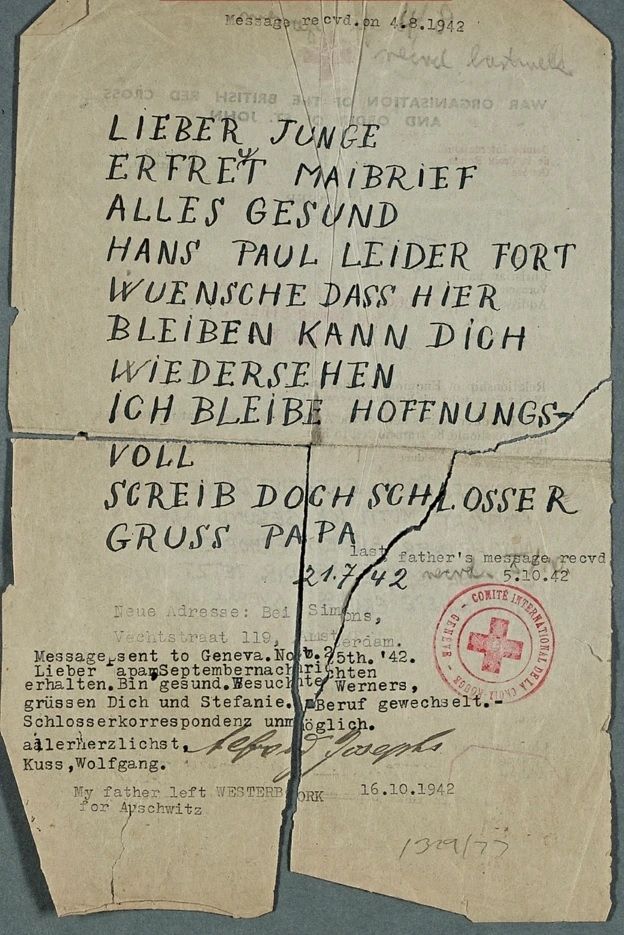 Message recvd.on 4.8.1942
recvd
WAR ORGANISATION OF THE BRITISH RED CROSS
AND ORDER OF ST. JOHN
LIEBER JUNGE
ERFREUT MAIBRIEF
ALLES GESUND
HANS PAUL LEIDER FORT
WUENSCHE DASS HIER
BLEIBEN KANN DICH
WIEDERSEHEN
ICH BLEIBE HOFFNUNGS-
VOLL
SCREIB DOCH SCHLOSSER
GRUSS PAPA
last father's message recvd
21.7/42 recvd. 5.10.42
Neue Adresse: Bei Simons,
Vechtstraat 119, Amsterdam.
COMITÉ INTERNATIONAL DE LA CROIX-ROUGE - GENÈVE -
Message sent to Geneva. Nov. 25th.'42.
Lieber Papa, Septembernachrichten
erhalten.Bin gesund.Wesuchte Werners,
grüssen Dich und Stefanie. Beruf gewechselt.-
Schlosserkorrespondenz unmöglich.
allerherzlichst,
Kuss,Wolfgang.
My father left WESTERBORK 16.10.1942
for Auschwitz
1329/77